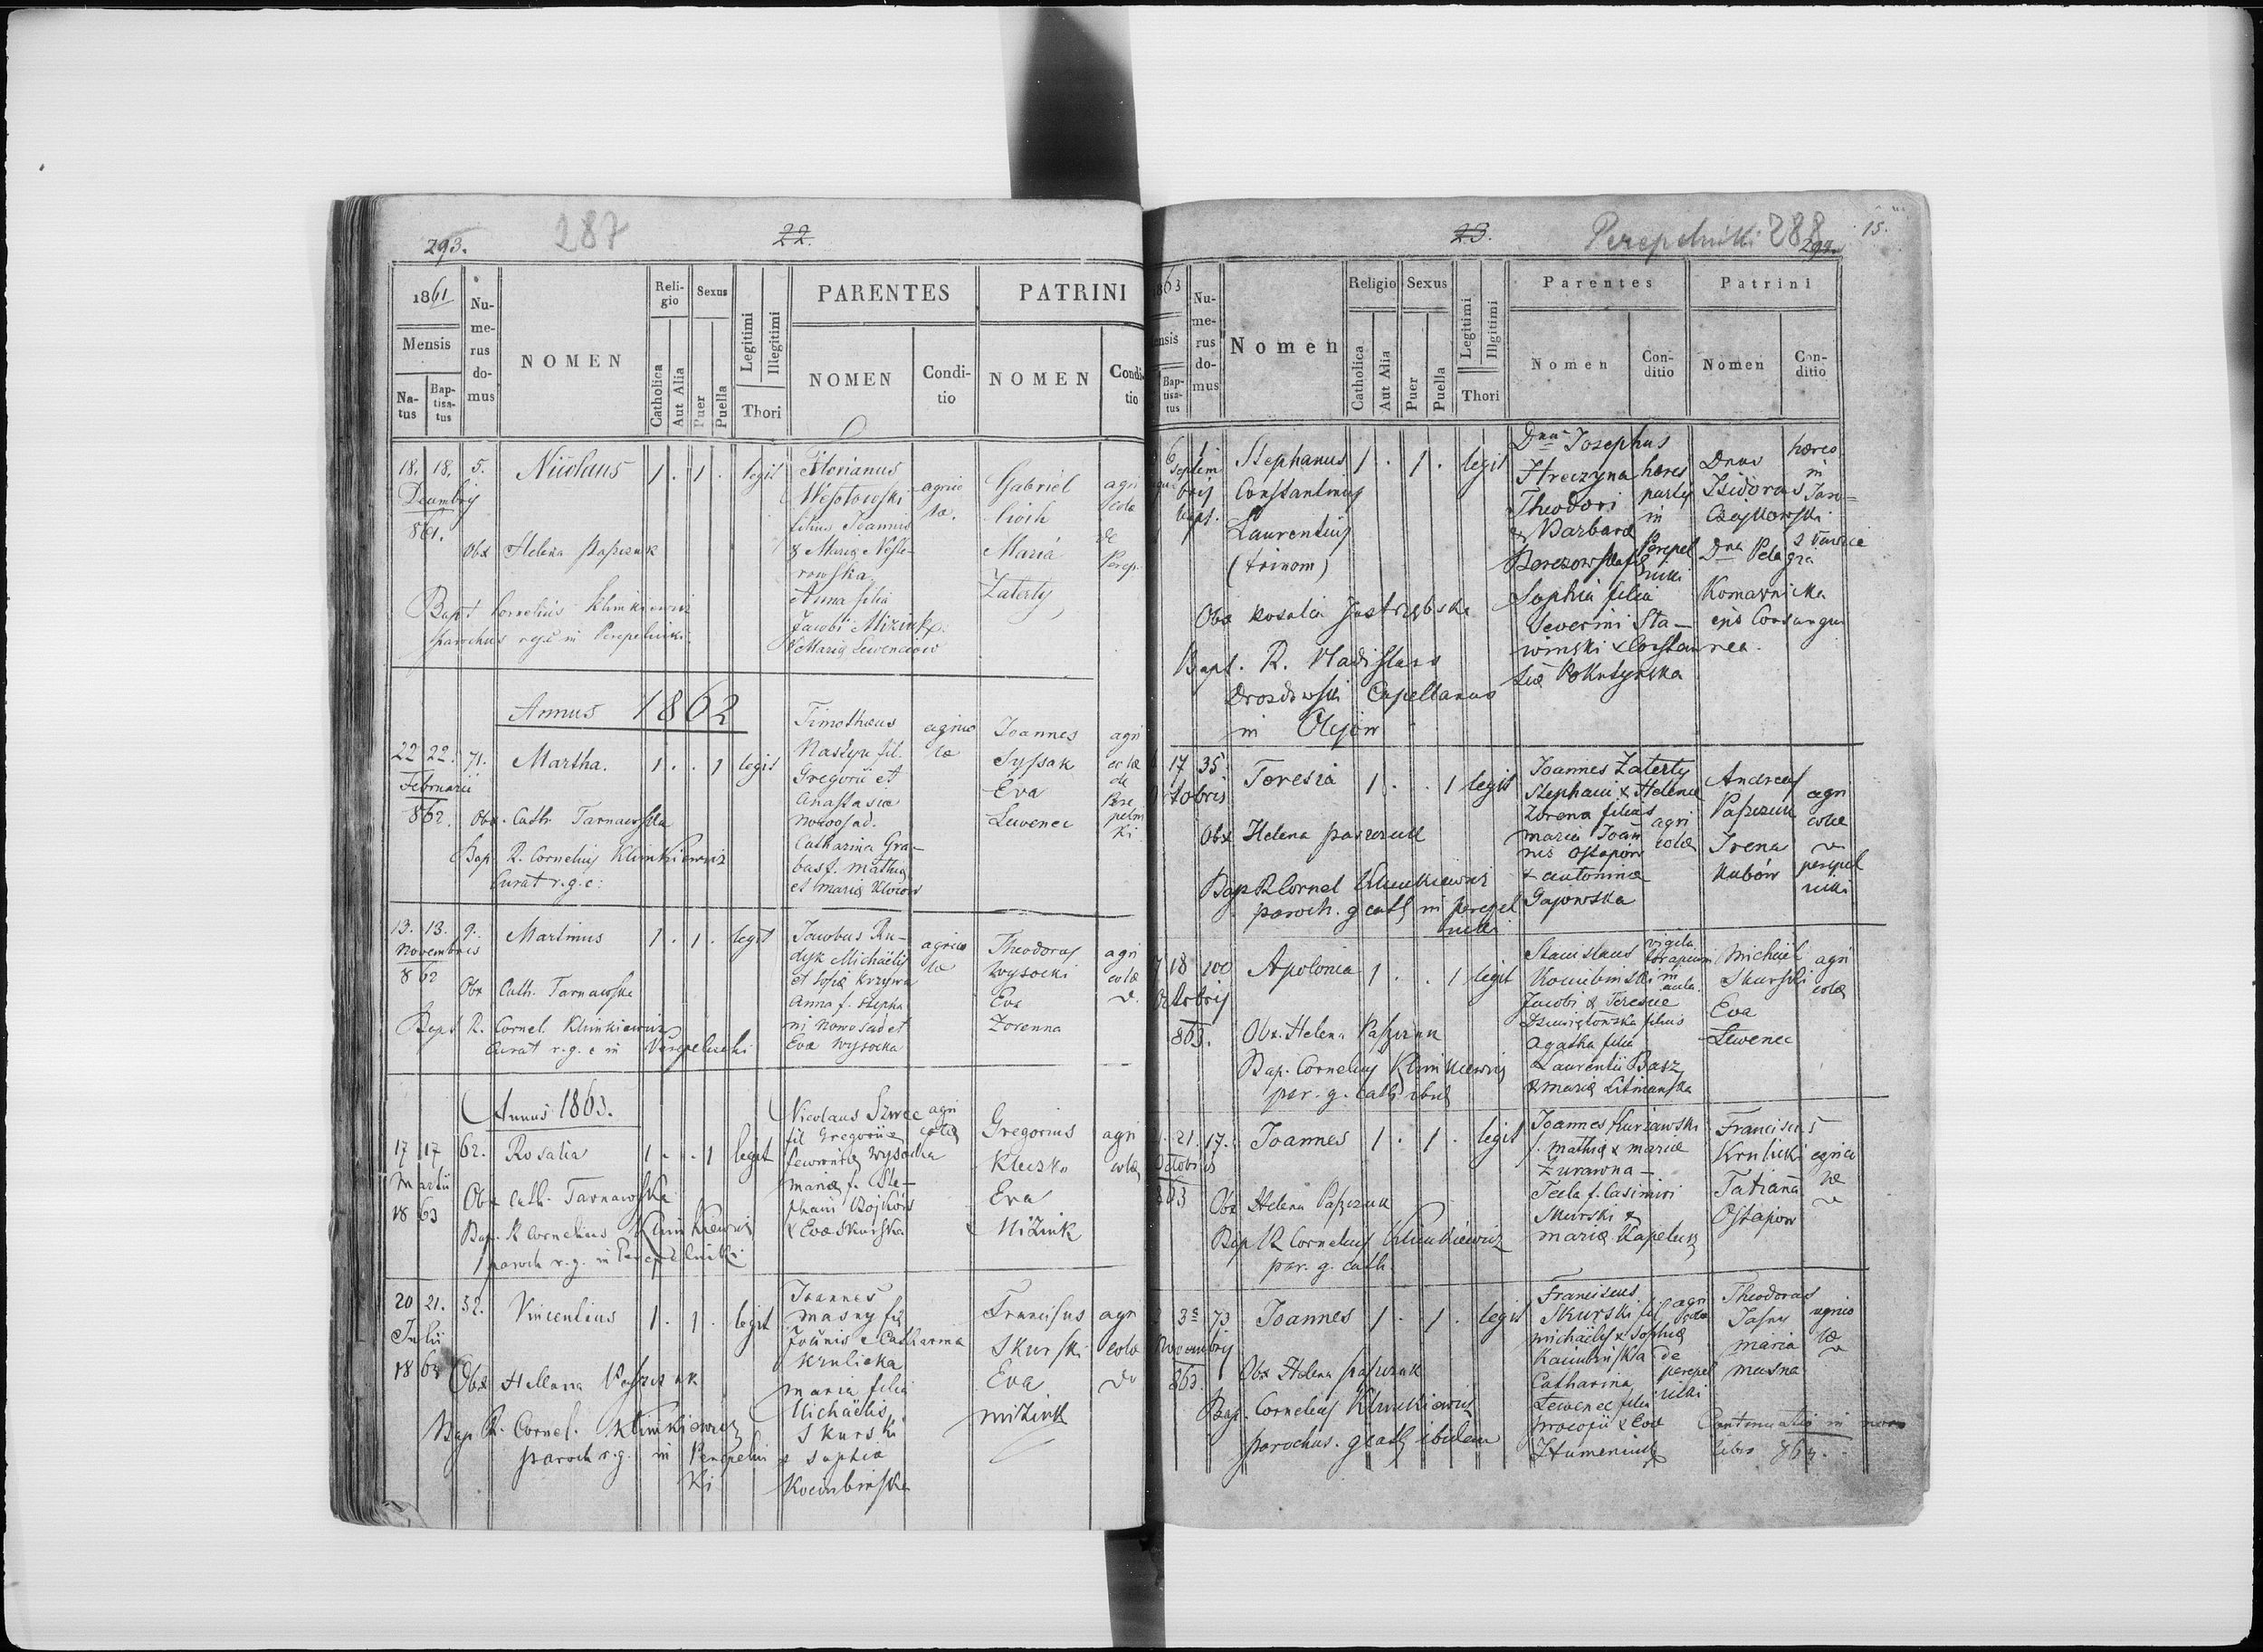 293.
287
22.
1861
Mensis
Na-
tus
Bap-
tisa-
tus
Nu-
me-
rus
do-
mus
NOMEN
Reli-
gio
Catholica
Aut Alia
Sexus
Puer
Puella
Legitimi
Illegitimi
Thori
PARENTES
NOMEN
Condi-
tio
PATRINI
NOMEN
Condi-
tio
18. 18. 5. Nicolaus 1 . 1 . legit
Decembrij
861.
Obx Helena Paszczuk
Bapt Cornelius Klimkiewicz
parochus r. g. c. in Perepelniki
Florianus
Wesołowski
filius Joannis
& Maria Neste-
rowska
Anna filia
Jacobi Mizink
& Maria Lewenciow
agrico
læ.
Gabriel
Maria
Zaterty
agri
colæ
de
Perep.
Annus 1862
22 22. 71. Martha. 1 . . 1 legit
Februarii
862. Obx. Cath Tarnawska
Bap. R. Cornelius Klimkiewicz
Curat r. g. c:
Timothæus
fil.
Gregorii et
Anastasia
Nowosad.
Catharina Gra-
bas f. Mathiæ
et Maria
agrico
læ
Joannes
Syssak
Eva
Lewenec
agri
colæ
de
Pere
peln
ki
13. 13. 9. Martinus 1 . 1 . legit
Novembris
862
Obx Cath. Tarnawska
Bapt R. Cornel. Klimkiewicz
Curat r. g. c in Perepelniki
Jacobus Ru-
dyk Michaelis
et Sofia Krzywa
Anna f. Stepha
ni Nowosad et
Eva Wysocka
agrico
læ
Theodorus
Wysocki
Eva
Zorenna
agri
colæ
Annus 1863.
17 17 62. Rosalia 1 . . 1 legit
Martii
1863
Obx Cath. Tarnawska
Bap. R Cornelius Klimkiewicz
paroch r. g. in Perepelniki
Nicolaus Szwec
fil Gregorii &
Wysocka
Maria f. Ste-
phani Bojków
& Eva Skurska
agri
colæ
Gregorius
Kleczko
Eva
Mizink
agri
colæ
20 21. 52. Vincentius 1 . 1 . legit
Julii
1863 Obx Hellena Paszczuk
Bap R. Cornel. Klimkiewicz
paroch r. g. in Perepelni
ki
Joannes
Masny fil
Joannis & Catharina
Krulicka
Maria filia
Michaëlis
Skurski
& Sophia
Kocimbinska
Franciscus
Skurski
Eva
Mizink
agri
colæ
do
23.
Perepelniki 288
294.
15.
1863
Mensis
Bap-
tisa-
tus
Nu-
me-
rus
do-
mus
Nomen
Religio
Catholica
Aut Alia
Sexus
Puer
Puella
Legitimi
Illgitimi
Thori
Parentes
Nomen
Con-
ditio
Patrini
Nomen
Con-
ditio
6 1 Stephanus 1 . 1 . legit
Septem
bris
Constantinus
Laurentius
(trinom)
Obx Rosalia Jastrzębska
Bapt. R. Vladislaus
Drozdowski Capellanus
in Olejow
Dnus Josephus
Hreczyna
Theodori
& Barbara
Berezowska fil
Sophia filia
Severini Sta-
winski & Constan
tia Pokutynska
hæres
partis
in
Perepel
niki
Dnus
Isidorus
Czajkowski
Dna Pelagia
Komarnicka
ejus Consangui
nea.
hæres
in
17 35 Teresia 1 . . 1 legit
Octobris
Obx Helena paszczuk
Bap R Cornel Klimkiewicz
paroch. g cath in perepel
niki
Joannes Zaterty
Stephani & Helena
Zorena filius
Maria Joan
nis Ostapów
& Antonina
Gajowska
agri
colæ
Andreas
Paszczuk
Irena
Kubów
agri
colæ
perepel
niki
18 100 Apolonia 1 . . 1 legit
Octobris
863. Obx. Helena Paszczuk
Bap. Cornelius Klimkiewicz
par. g. cath ibid
Stanislaus
Kocimbinski
Jacobi & Teresiæ
filius
Agatha filia
Laurentii Basz
& Maria Litwinska
in
aula.
Michaël
Skurski
Eva
Lewenec
agri
colæ
21. 17. Joannes 1 . 1 . legit
Octobris
863
Obx Helena Paszczuk
Bap R Cornelius Klimkiewicz
par. g. cath.
Joannes Kurzawski
f. Mathiæ & Mariæ
Zurawna -
Tecla f. Casimiri
Skurski &
Maria Kapelusz
Franciscus
Krulicki
Tatiana
Ostapow
agrico
læ
3 73 Joannes 1 . 1 . legit
Novembrij
863. Obx Helena paszczuk
Bap. Cornelius Klimkiewicz
parochus. g cath ibidem
Franciscus
Skurski fil
Michaëlis & Sophia
Kocimbinska
Catharina
Lewenec filia
Procopii & Eva
Humeniuk
agri
colæ
de
perepel
niki
Theodorus
Jasny
Maria
Masna
agrico
læ
Continuatio in novo
libro 863.